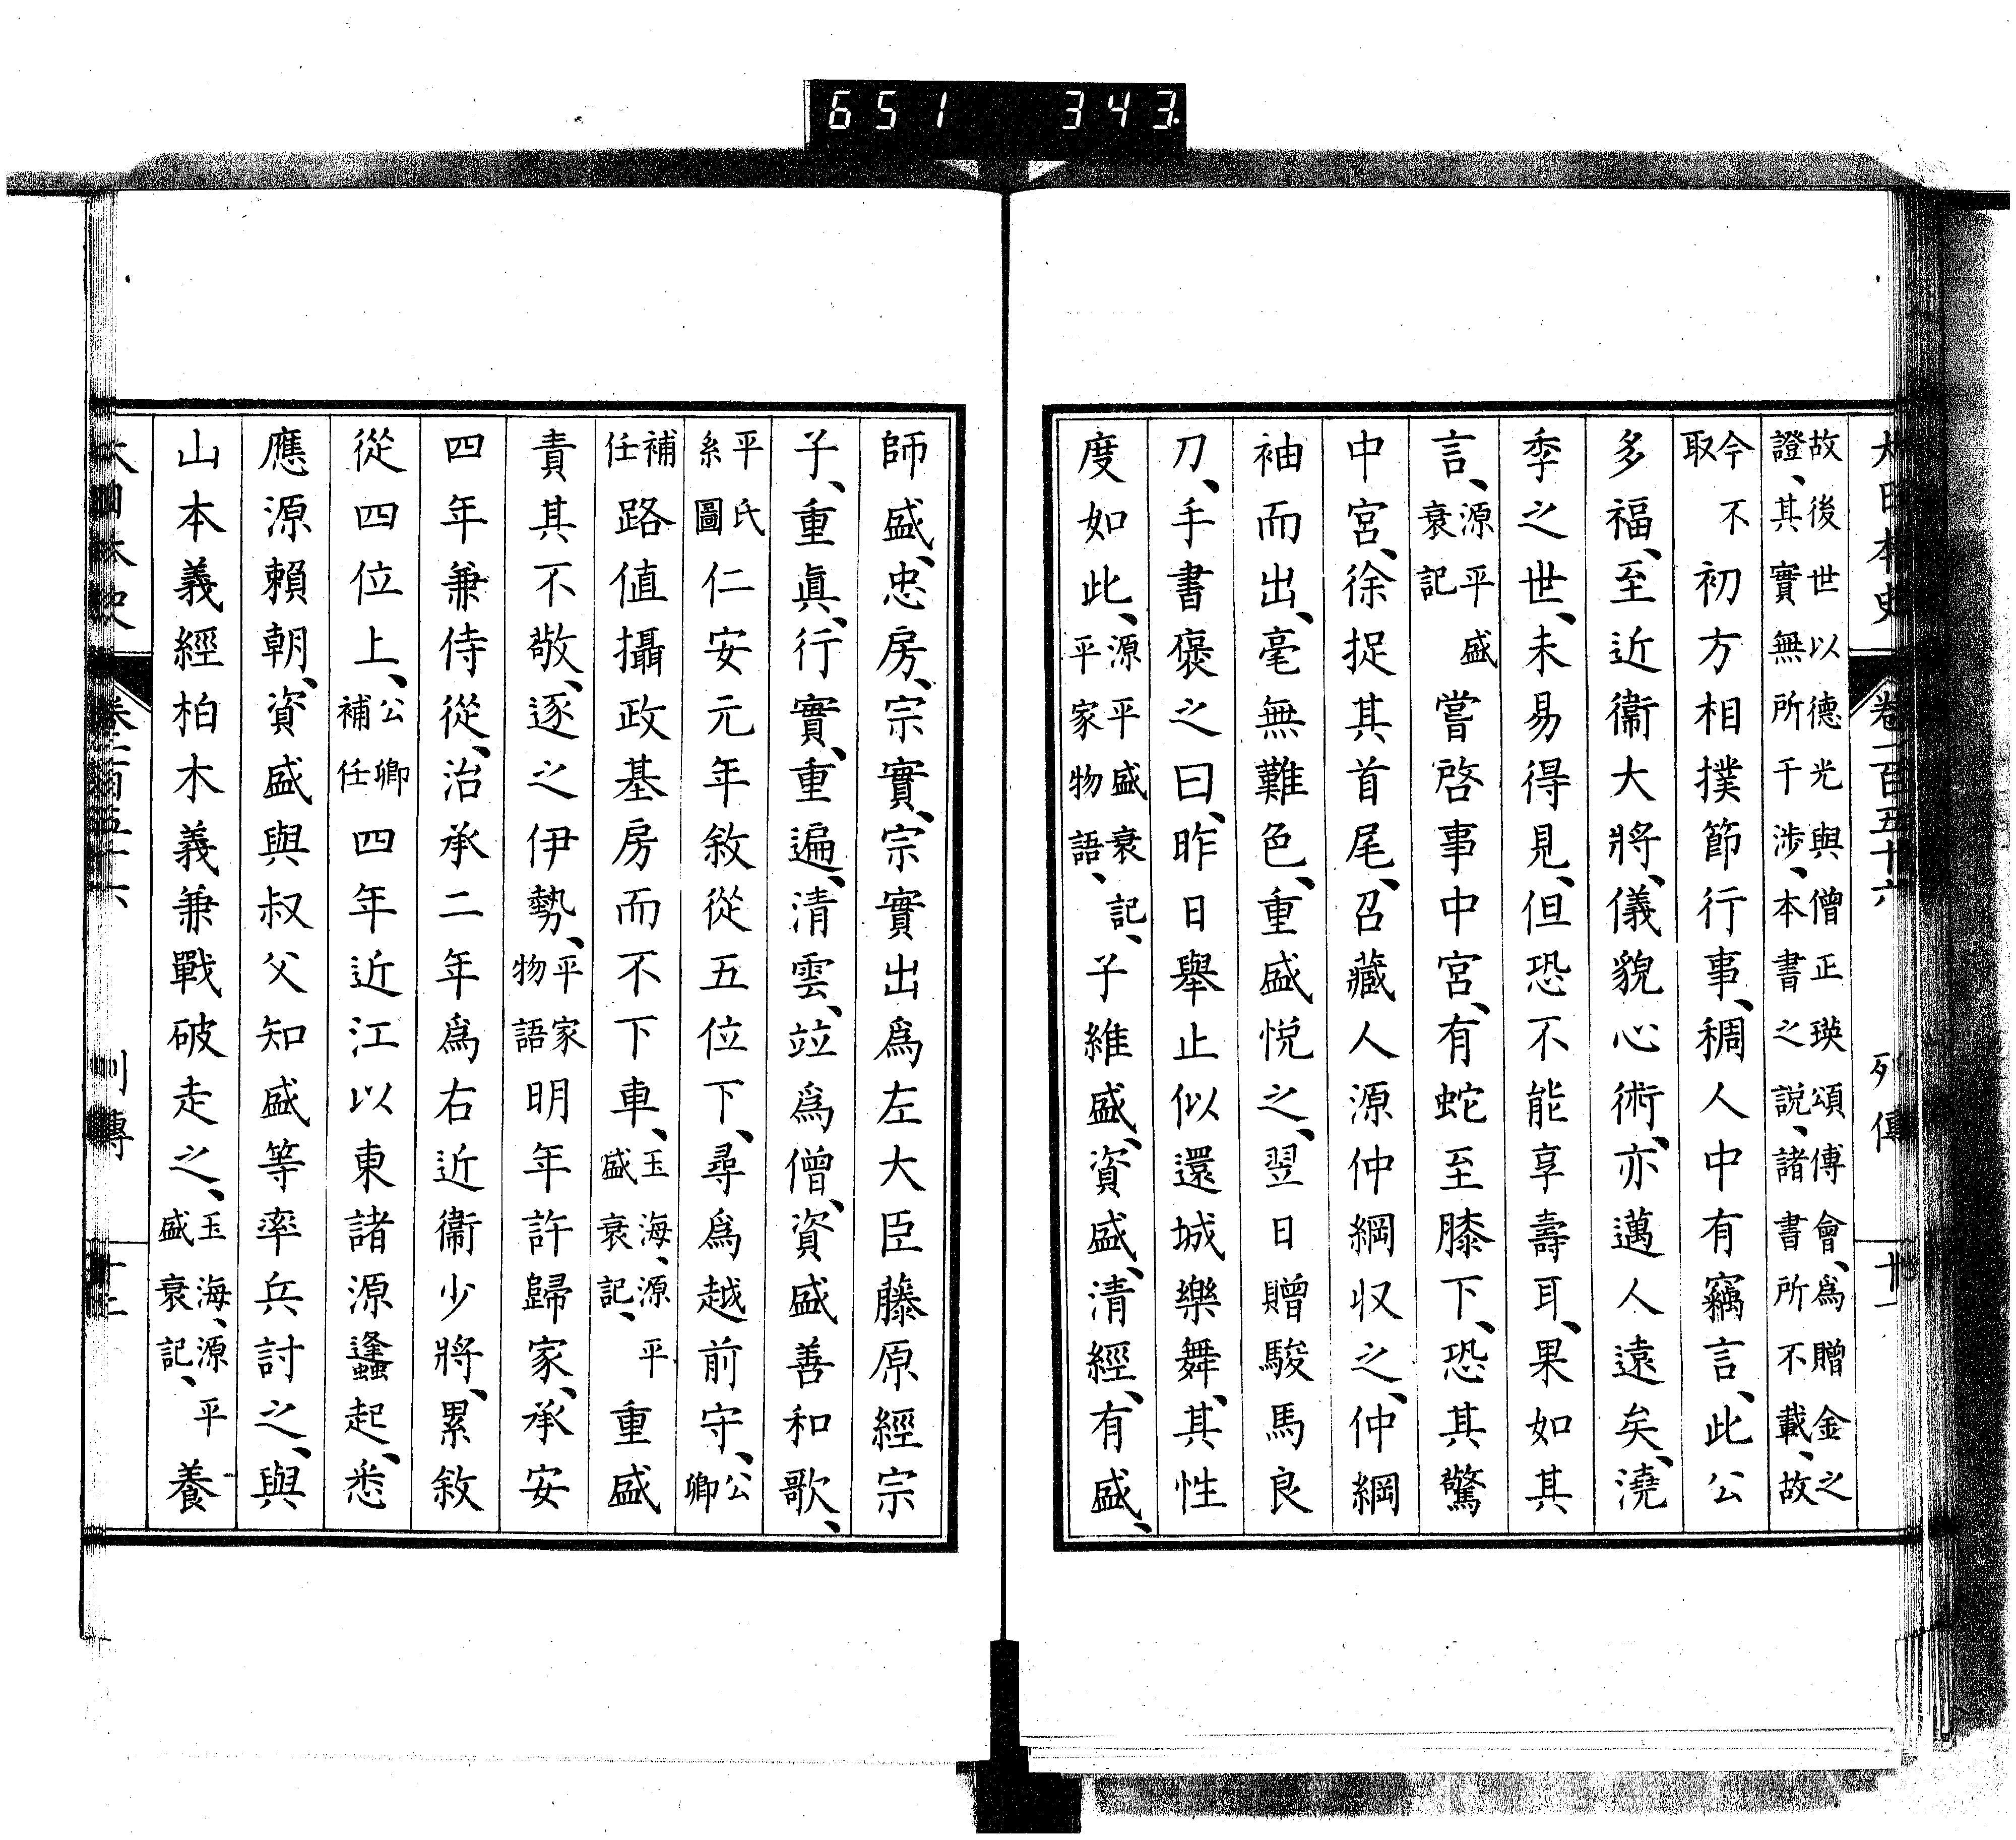 651 343.
大日本史 卷一百五十六 列傳 十一
故後世以德光與僧正瑛頌傅會、爲贈金之
證、其實無所干渉、本書之説、諸書所不載、故
今不
取
初方相撲節行事、稠人中有竊言、此公
多福、至近衞大將、儀貌心術、亦邁人遠矣、澆
季之世、未易得見、但恐不能享壽耳、果如其
言、源平盛
衰記
嘗啓事中宮、有蛇至膝下、恐其驚
中宮、徐捉其首尾、召藏人源仲綱收之、仲綱
袖而出、毫無難色、重盛悦之、翌日贈駿馬良
刀、手書褒之曰、昨日舉止似還城樂舞、其性
度如此、源平盛衰記、
平家物語、
子維盛、資盛、清經、有盛、
師盛、忠房、宗實、宗實出爲左大臣藤原經宗
子、重眞、行實、重遍、清雲、竝爲僧、資盛善和歌、
平氏
系圖
仁安元年敘從五位下、尋爲越前守、公
卿
補
任
路値攝政基房而不下車、玉海、源平
盛衰記、
重盛
責其不敬、逐之伊勢、平家
物語
明年許歸家、承安
四年兼侍從、治承二年爲右近衞少將、累敘
從四位上、公卿
補任
四年近江以東諸源蠭起、悉
應源賴朝、資盛與叔父知盛等率兵討之、與
山本義經柏木義兼戰破走之、玉海、源平
盛衰記、
養
大日本史 列傳